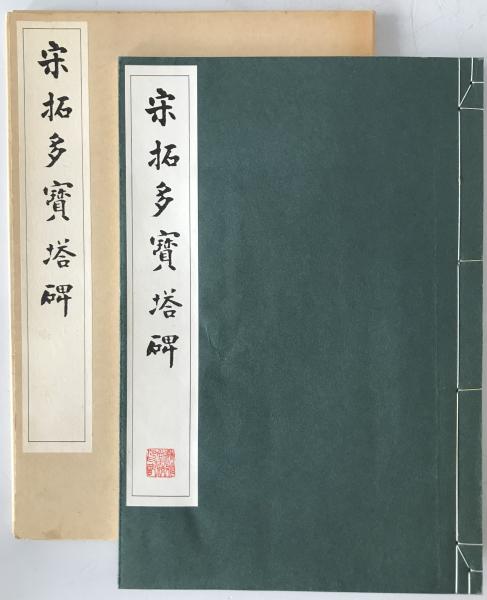 宋拓多寶塔碑
宋拓多寶塔碑